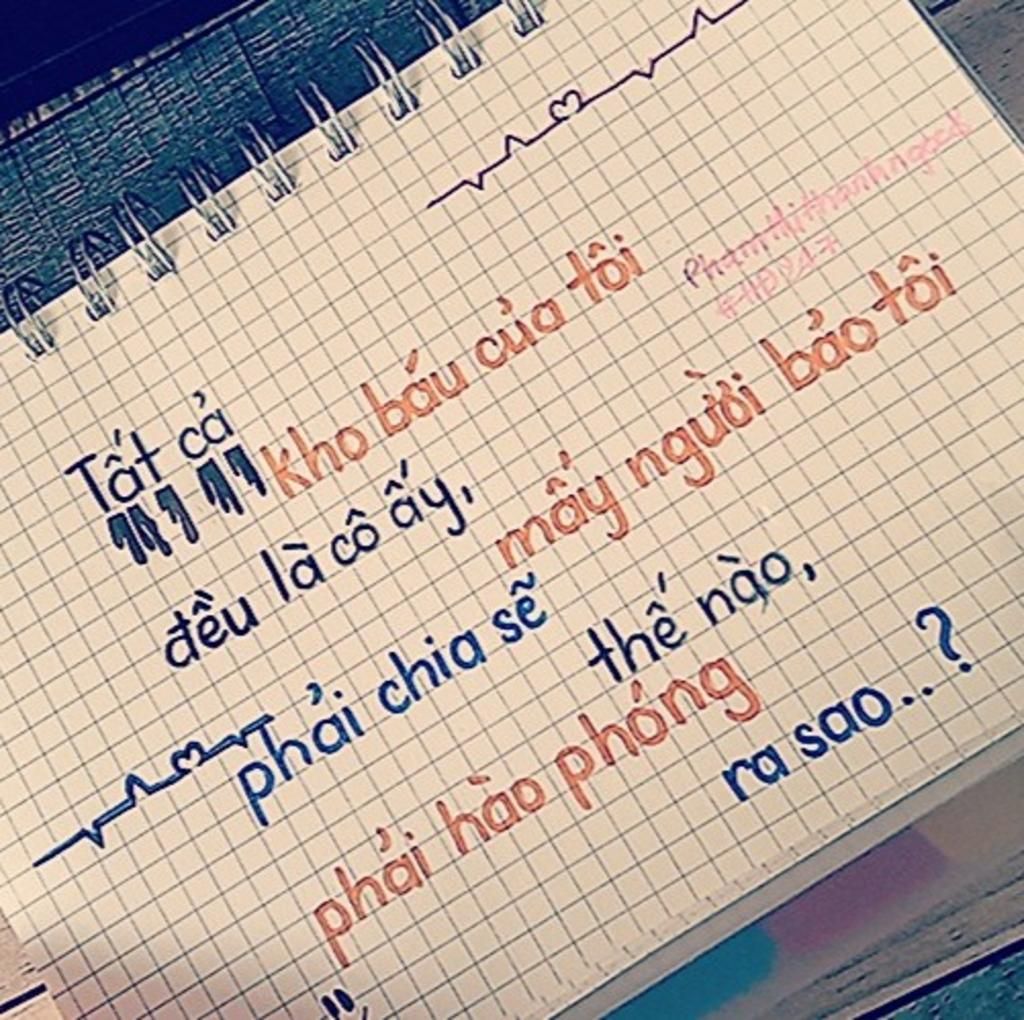 Phamthithanhngoc8
#HD247
Tất cả kho báu của tôi
đều là cô ấy, mấy người bảo tôi
phải chia sẽ thế nào,
phải hào phóng ra sao..?